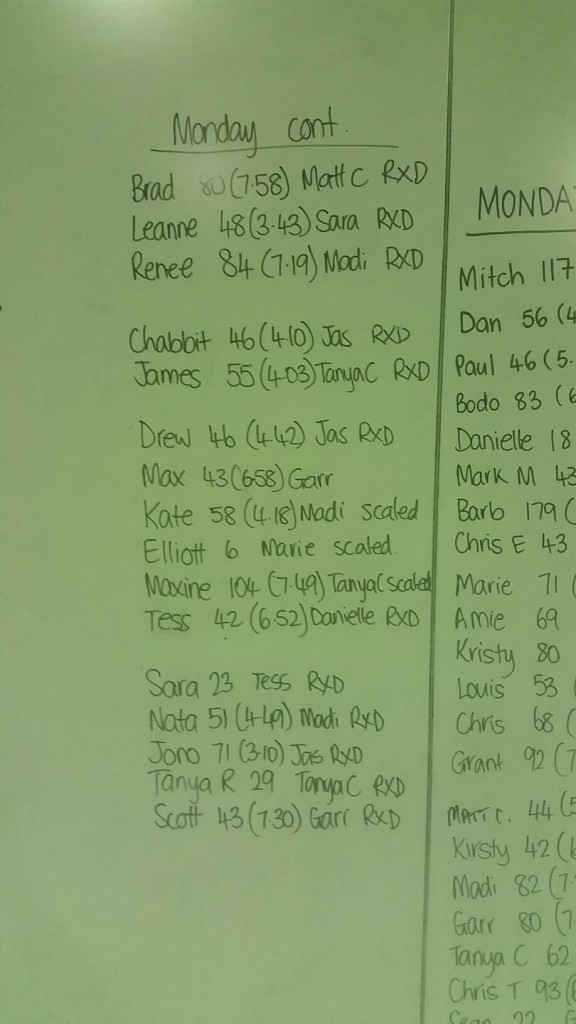 Monday cont.
Brad 80 (7.58) Matt C RXD
Leanne 48 (3.43) Sara RXD
Renee 84 (7.19) Madi RXD
Chabbit 46 (4.10) Jas RXD
James 55 (4.03) Tanya C RXD
Drew 46 (4.42) Jas RXD
Max 43 (6.58) Garr
Kate 58 (4.18) Madi scaled
Elliott 6 Marie scaled.
Maxine 104 (7.49) Tanya C scaled
Tess 42 (6.52) Danielle RXD
Sara 23 Tess RXD
Nata 51 (4.49) Madi RXD
Jono 71 (3.10) Jas RXD
Tanya R 29 Tanya C RXD
Scott 43 (7.30) Garr RXD
MONDA
Mitch 117
Dan 56 (4
Paul 46 (5.
Bodo 83 (6
Danielle 18
Mark M 43
Barb 179 (
Chris E 43
Marie 71 (
Amie 69
Kristy 80
Louis 53 (
Chris 68 (
Grant 92 (7
MATT C. 44 (5
Kirsty 42 (6
Madi 82 (7.
Garr 80 (7
Tanya C 62
Chris T 93 (
Sean 22